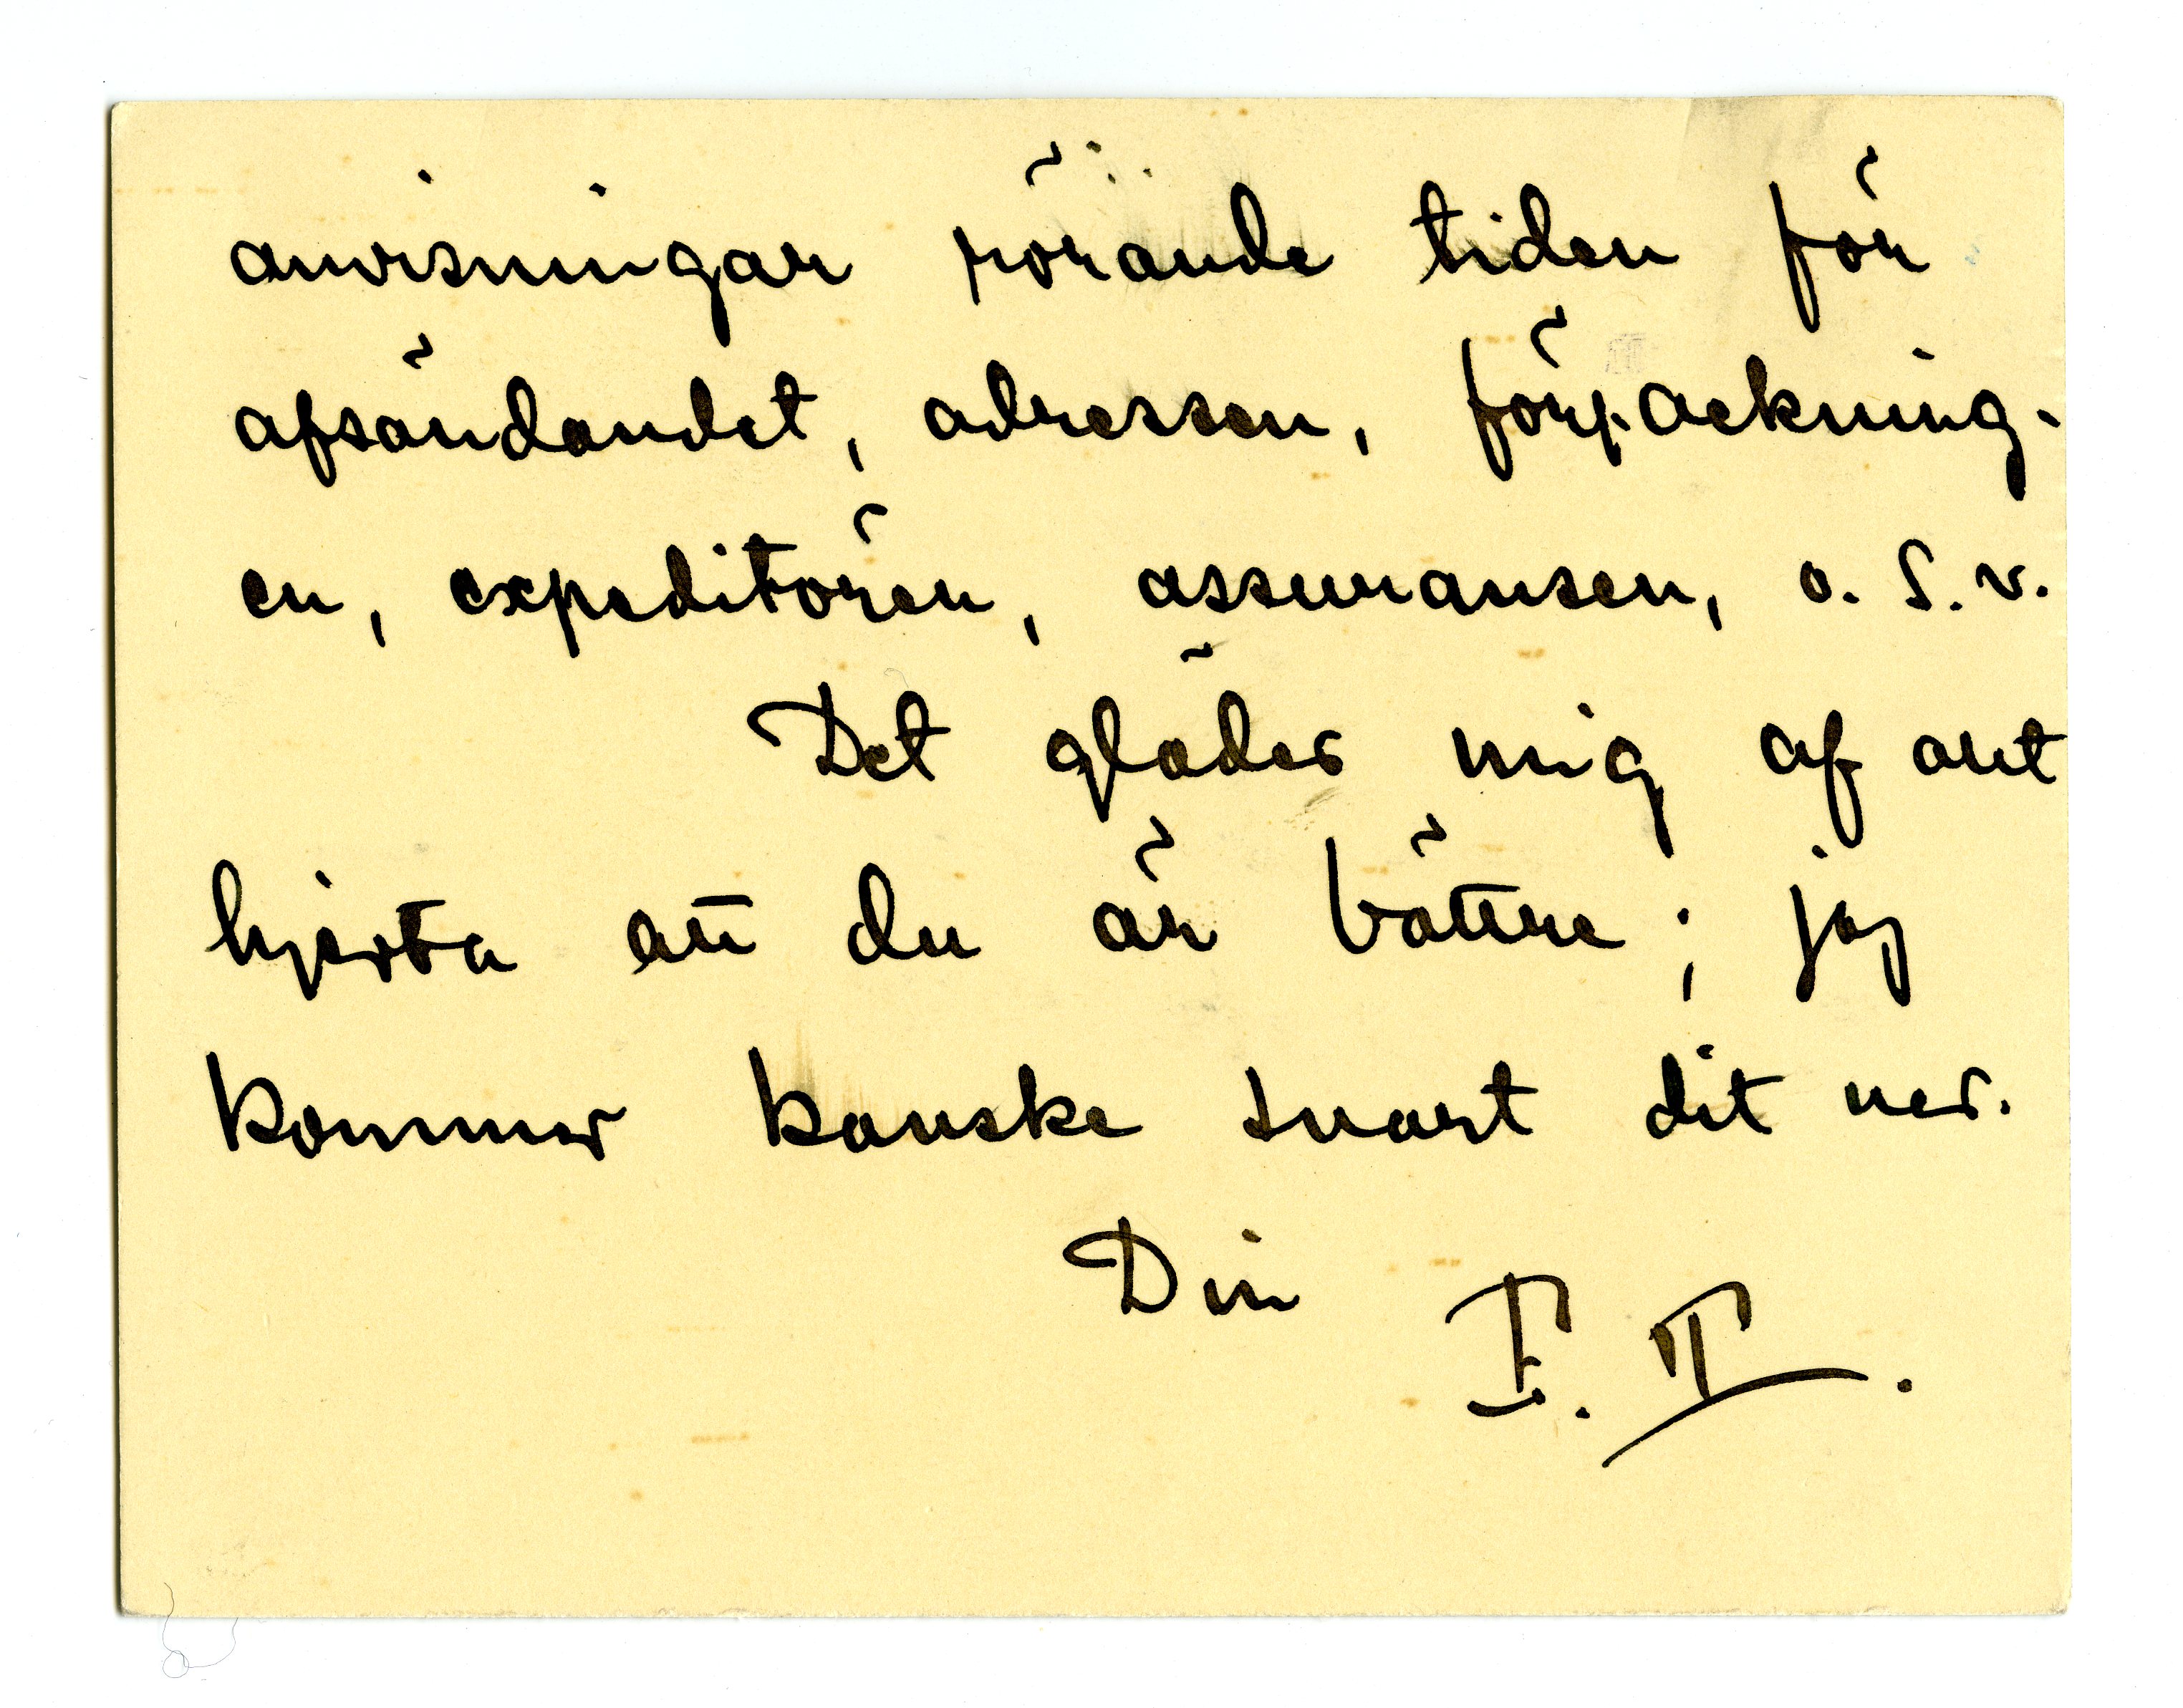 anvisningar rörande tiden för
afsändandet, adressen, förpackning-
en, expeditören, assuransen, o. s. v.
Det gläder mig af allt
hjerta att du är bättre; jag
kommer kanske snart dit ner.
Din F. T.